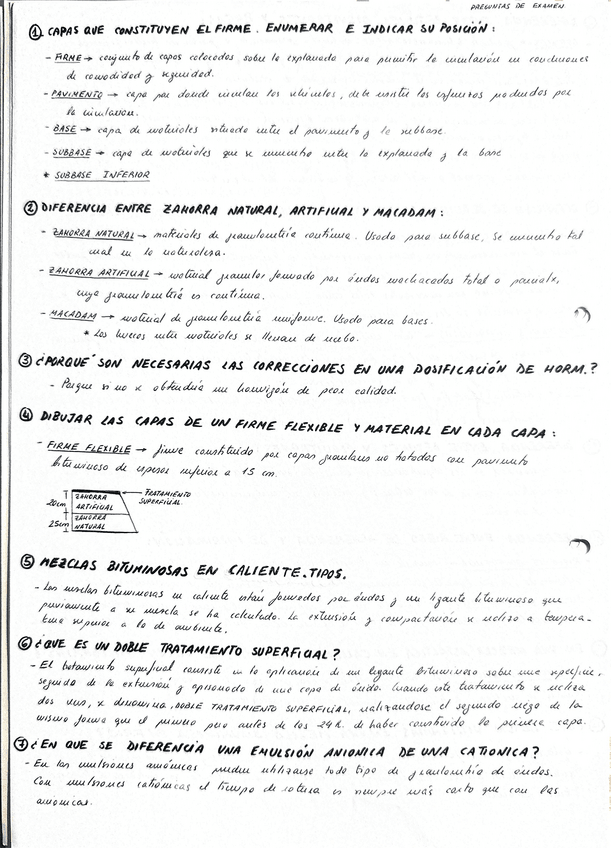 PREGUNTAS DE EXAMEN
① CAPAS QUE CONSTITUYEN EL FIRME. ENUMERAR E INDICAR SU POSICIÓN:
- FIRME → conjunto de capas colocadas sobre la explanada para permitir la circulación en condiciones
de comodidad y seguridad.
- PAVIMENTO → capa por donde circulan los vehículos, debe resistir los esfuerzos producidos por
la circulación.
- BASE → capa de materiales situada entre el pavimento y la subbase.
- SUBBASE → capa de materiales que se encuentra entre la explanada y la base
* SUBBASE INFERIOR
② DIFERENCIA ENTRE ZAHORRA NATURAL, ARTIFICIAL Y MACADAM:
- ZAHORRA NATURAL → materiales de granulometría continua. Usado para subbase. Se encuentra tal
cual en la naturaleza.
- ZAHORRA ARTIFICIAL → material granular formado por áridos machacados total o parcialx,
cuya granulometría es continua.
- MACADAM → material de granulometría uniforme. Usado para bases.
* Los huecos entre materiales se llenan de recebo.
③ ¿PORQUÉ SON NECESARIAS LAS CORRECCIONES EN UNA DOSIFICACIÓN DE HORM.?
- Porque si no se obtendría un hormigón de peor calidad.
④ DIBUJAR LAS CAPAS DE UN FIRME FLEXIBLE Y MATERIAL EN CADA CAPA:
- FIRME FLEXIBLE → firme constituido por capas granulares no tratadas con pavimento
bituminoso de espesor inferior a 15 cm.
TRATAMIENTO
SUPERFICIAL
20cm ZAHORRA
ARTIFICIAL
25cm ZAHORRA
NATURAL
⑤ MEZCLAS BITUMINOSAS EN CALIENTE. TIPOS.
- Las mezclas bituminosas en caliente están formadas por áridos y un ligante bituminoso que
previamente a su mezcla se ha calentado. La extensión y compactación se realiza a tempera-
tura superior a la de ambiente.
⑥ ¿QUE ES UN DOBLE TRATAMIENTO SUPERFICIAL?
- El tratamiento superficial consiste en la aplicación de un ligante bituminoso sobre una superficie,
seguida de la extensión y apisonado de una capa de árido. Cuando este tratamiento se realiza
dos veces, se denomina, DOBLE TRATAMIENTO SUPERFICIAL, realizandose el segundo riego de la
misma forma que el primero pero antes de las 24h. de haber construido la primera capa.
⑦ ¿EN QUE SE DIFERENCIA UNA EMULSIÓN ANIONICA DE UNA CATIONICA?
- En las emulsiones aniónicas pueden utilizarse todo tipo de granulometría de áridos.
Con emulsiones catiónicas el tiempo de rotura es siempre más corto que con las
aniónicas.